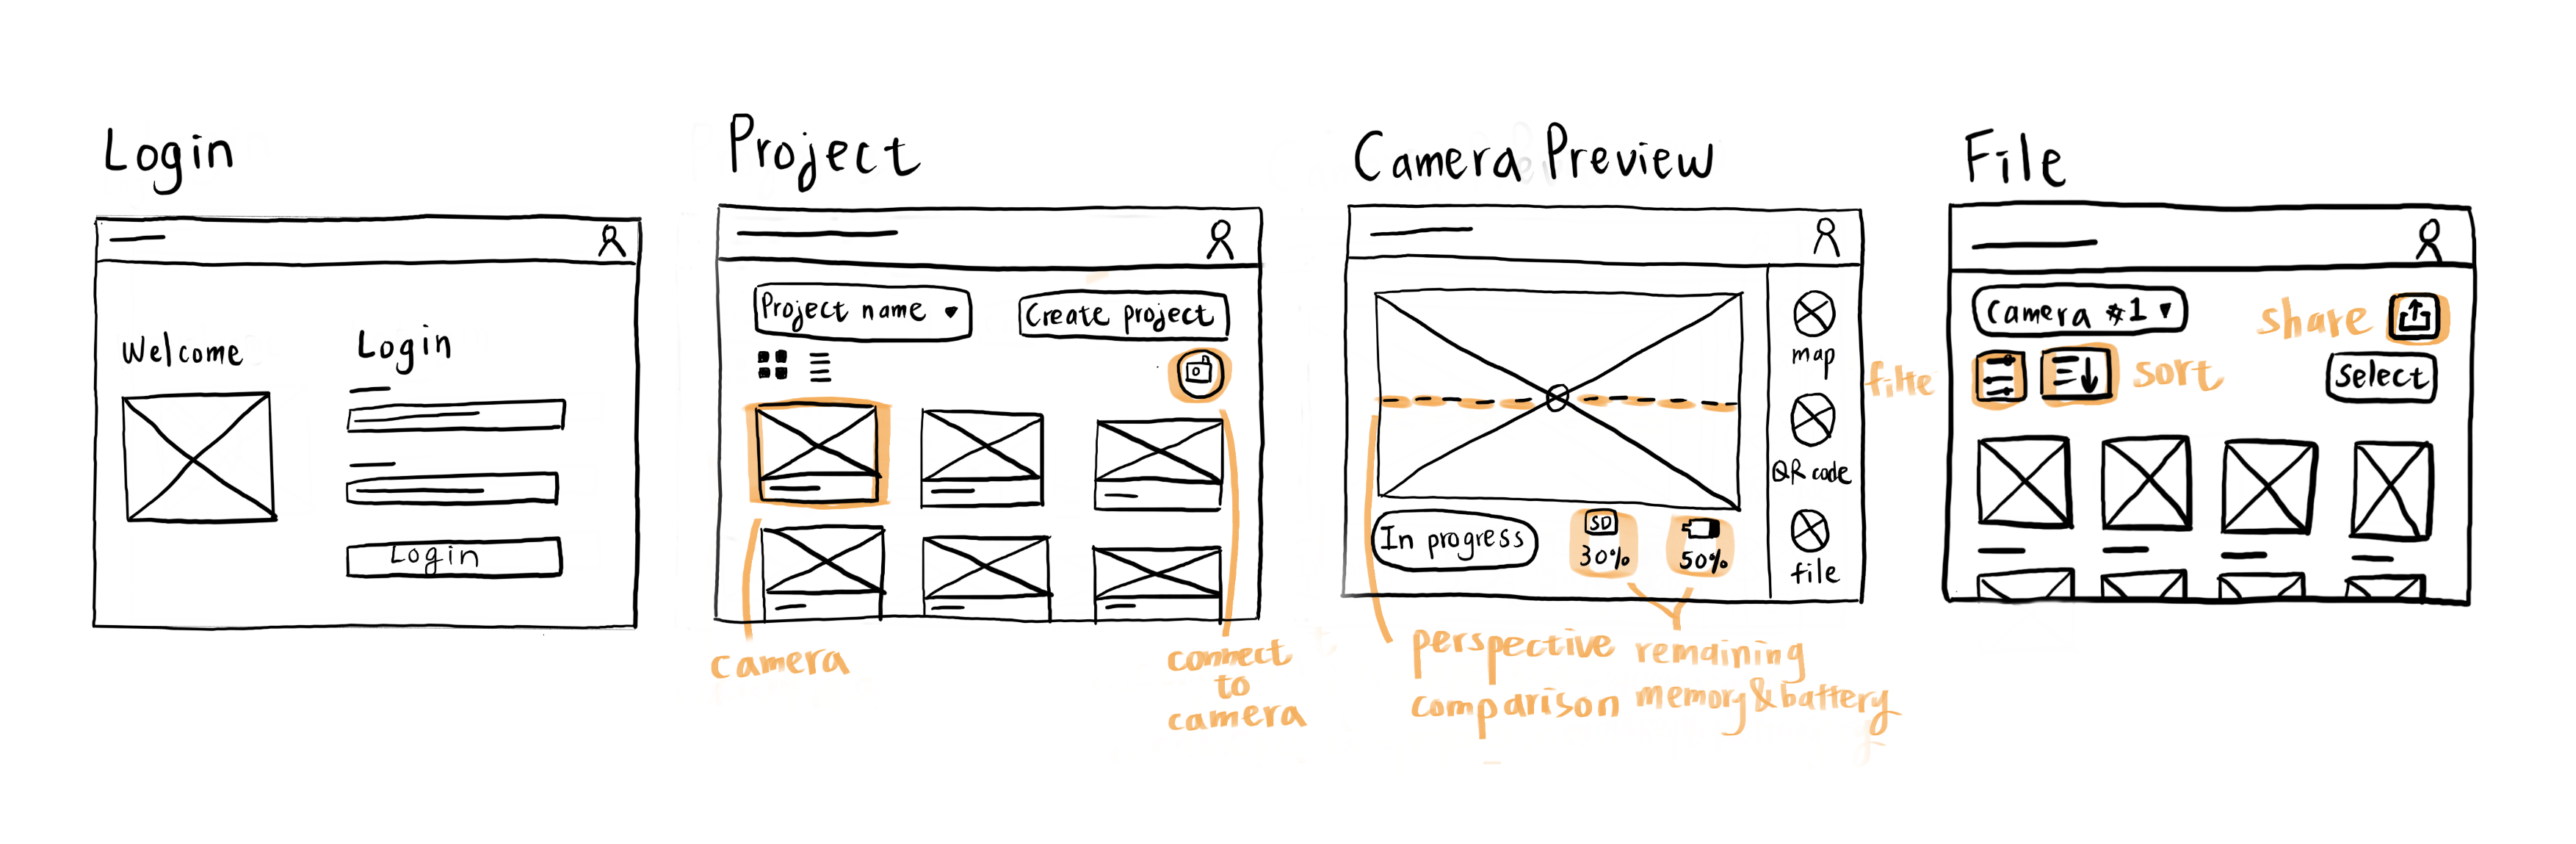 Login
Welcome
Login
Login
Project
Project name
Create project
camera
connect
to
camera
Camera Preview
map
QR code
file
In progress
SD
30%
50%
perspective
comparison
remaining
memory&battery
File
Camera #1
share
filte
sort
Select